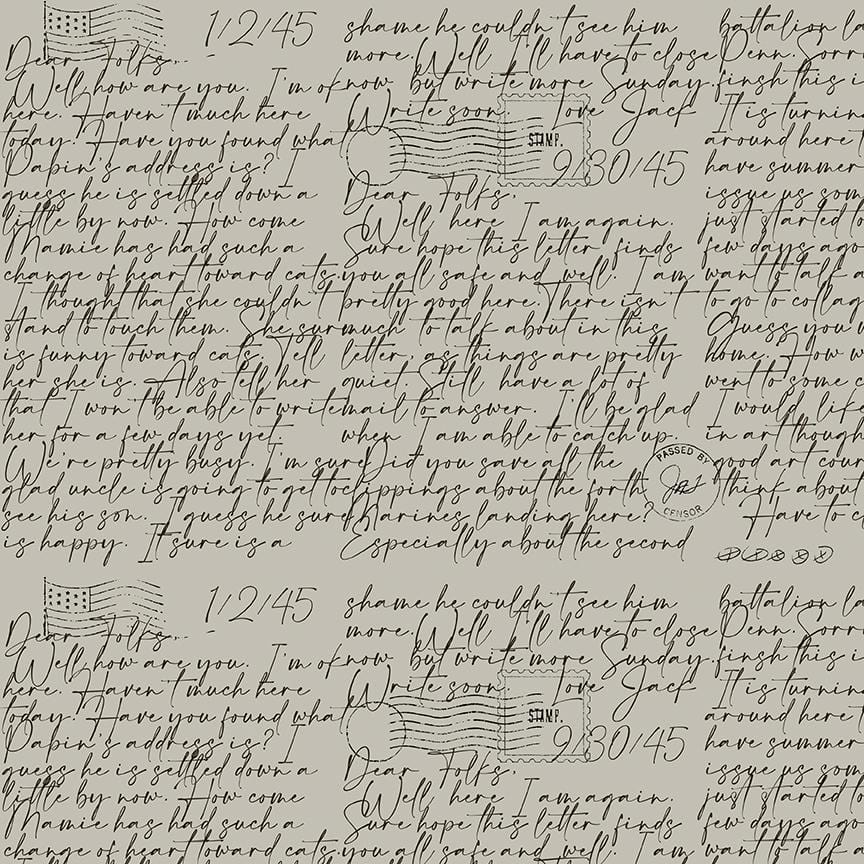 1/2/45
Dear Folks,
Well, how are you. I'm ok
here. Haven't much here
today. Have you found what
Papin's address is? I
guess he is settled down a
little by now. How come
Mamie has had such a
change of heart toward cats.
I thought that she couldn't
stand to touch them. She sur
is funny toward cats. Tell
her she is. Also tell her
that I won't be able to write
her for a few days yet.
We're pretty busy. I'm sure
glad uncle is going to get to
see his son. I guess he sure
is happy. It sure is a
shame he couldn't see him
more. Well I'll have to close
now but write more Sunday.
Write soon. Love Jack
STAMP.
9/30/45
Dear Folks,
Well, here I am again.
Sure hope this letter finds
you all safe and well. I am
pretty good here. There isn't
much to talk about in this
letter, as things are pretty
quiet. Still have a lot of
mail to answer. I'll be glad
when I am able to catch up.
Did you save all the
clippings about the forth
Marines landing here?
Especially about the second
PASSED BY
CENSOR
battalion la
Penn. Sorr
finsh this i
It is turnin
around here
have summer
issue us som
just started to
few days ago
want to talk a
to go to collag
Guess you
home. How w
went to some c
I would lik
in art though
good art cour
think about
Have to c
1/2/45
Dear Folks,
Well, how are you. I'm ok
here. Haven't much here
today. Have you found what
Papin's address is? I
guess he is settled down a
little by now. How come
Mamie has had such a
change of heart toward cats.
shame he couldn't see him
more. Well I'll have to close
now but write more Sunday.
Write soon. Love Jack
STAMP.
9/30/45
Dear Folks,
Well, here I am again.
Sure hope this letter finds
you all safe and well. I am
battalion la
Penn. Sorr
finsh this i
It is turnin
around here
have summer
issue us som
just started to
few days ago
want to talk a